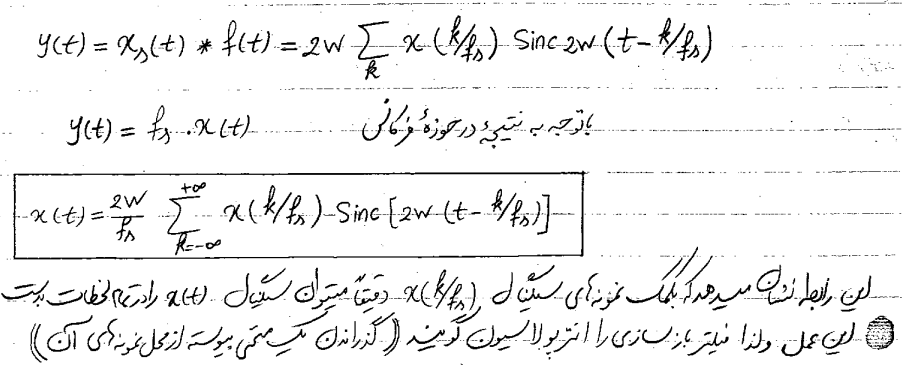 y(t) = x_s(t) * f(t) = 2W Σ_k x(k/f_s) Sinc 2W (t - k/f_s)
y(t) = f_s . x(t) باتوجه به نتیجهٔ درحوزهٔ فرکانس
x(t) = 2W/f_s Σ_{k=-∞}^{+∞} x(k/f_s) Sinc [2W (t - k/f_s)]
این رابطه نشان میدهد که بکمک نمونه‌های سیگنال x(k/f_s) دقیقاً میتوان سیگنال x(t) را در تمام لحظات بدست
این عمل ولذا فیلتر بازسازی را انترپولاسیون گویند ((گذراندن یک منحنی پیوسته از محل نمونه‌های آن))